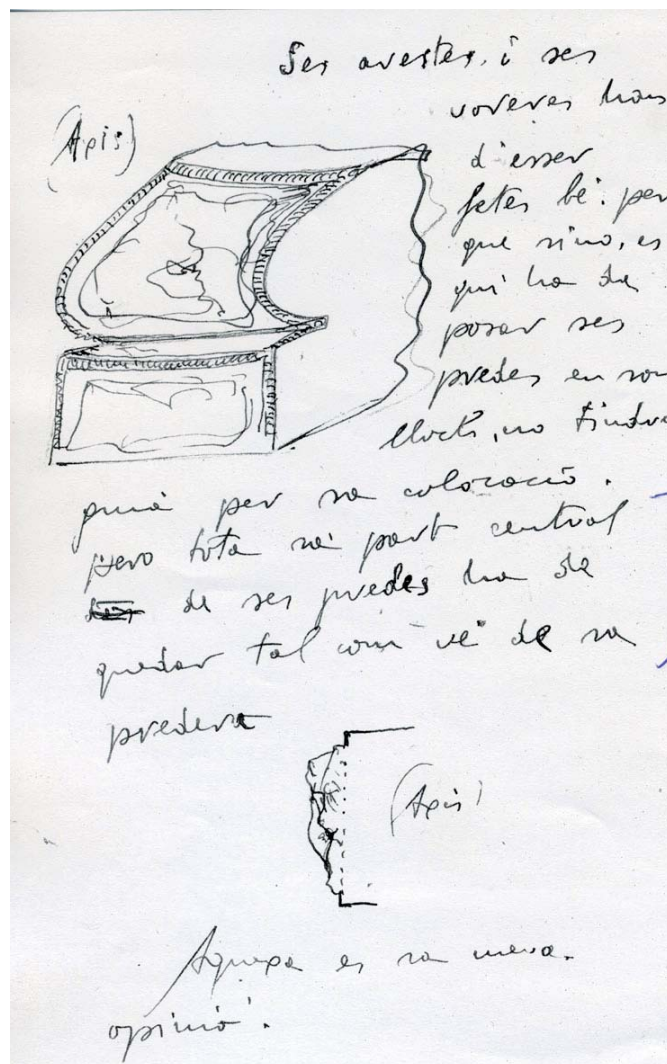 Ses arestes, i ses
voreres han
(Apis)
d'esser
fetes bé. per
que sino, es
qui ha de
posar ses
predes en son
lloch, no tindra
guia per sa colocació.
pero tota sa part central
de ses predes ha de
quedar tal com vé de sa
predera
(Apis)
Aquexa es sa meva.
opinió.